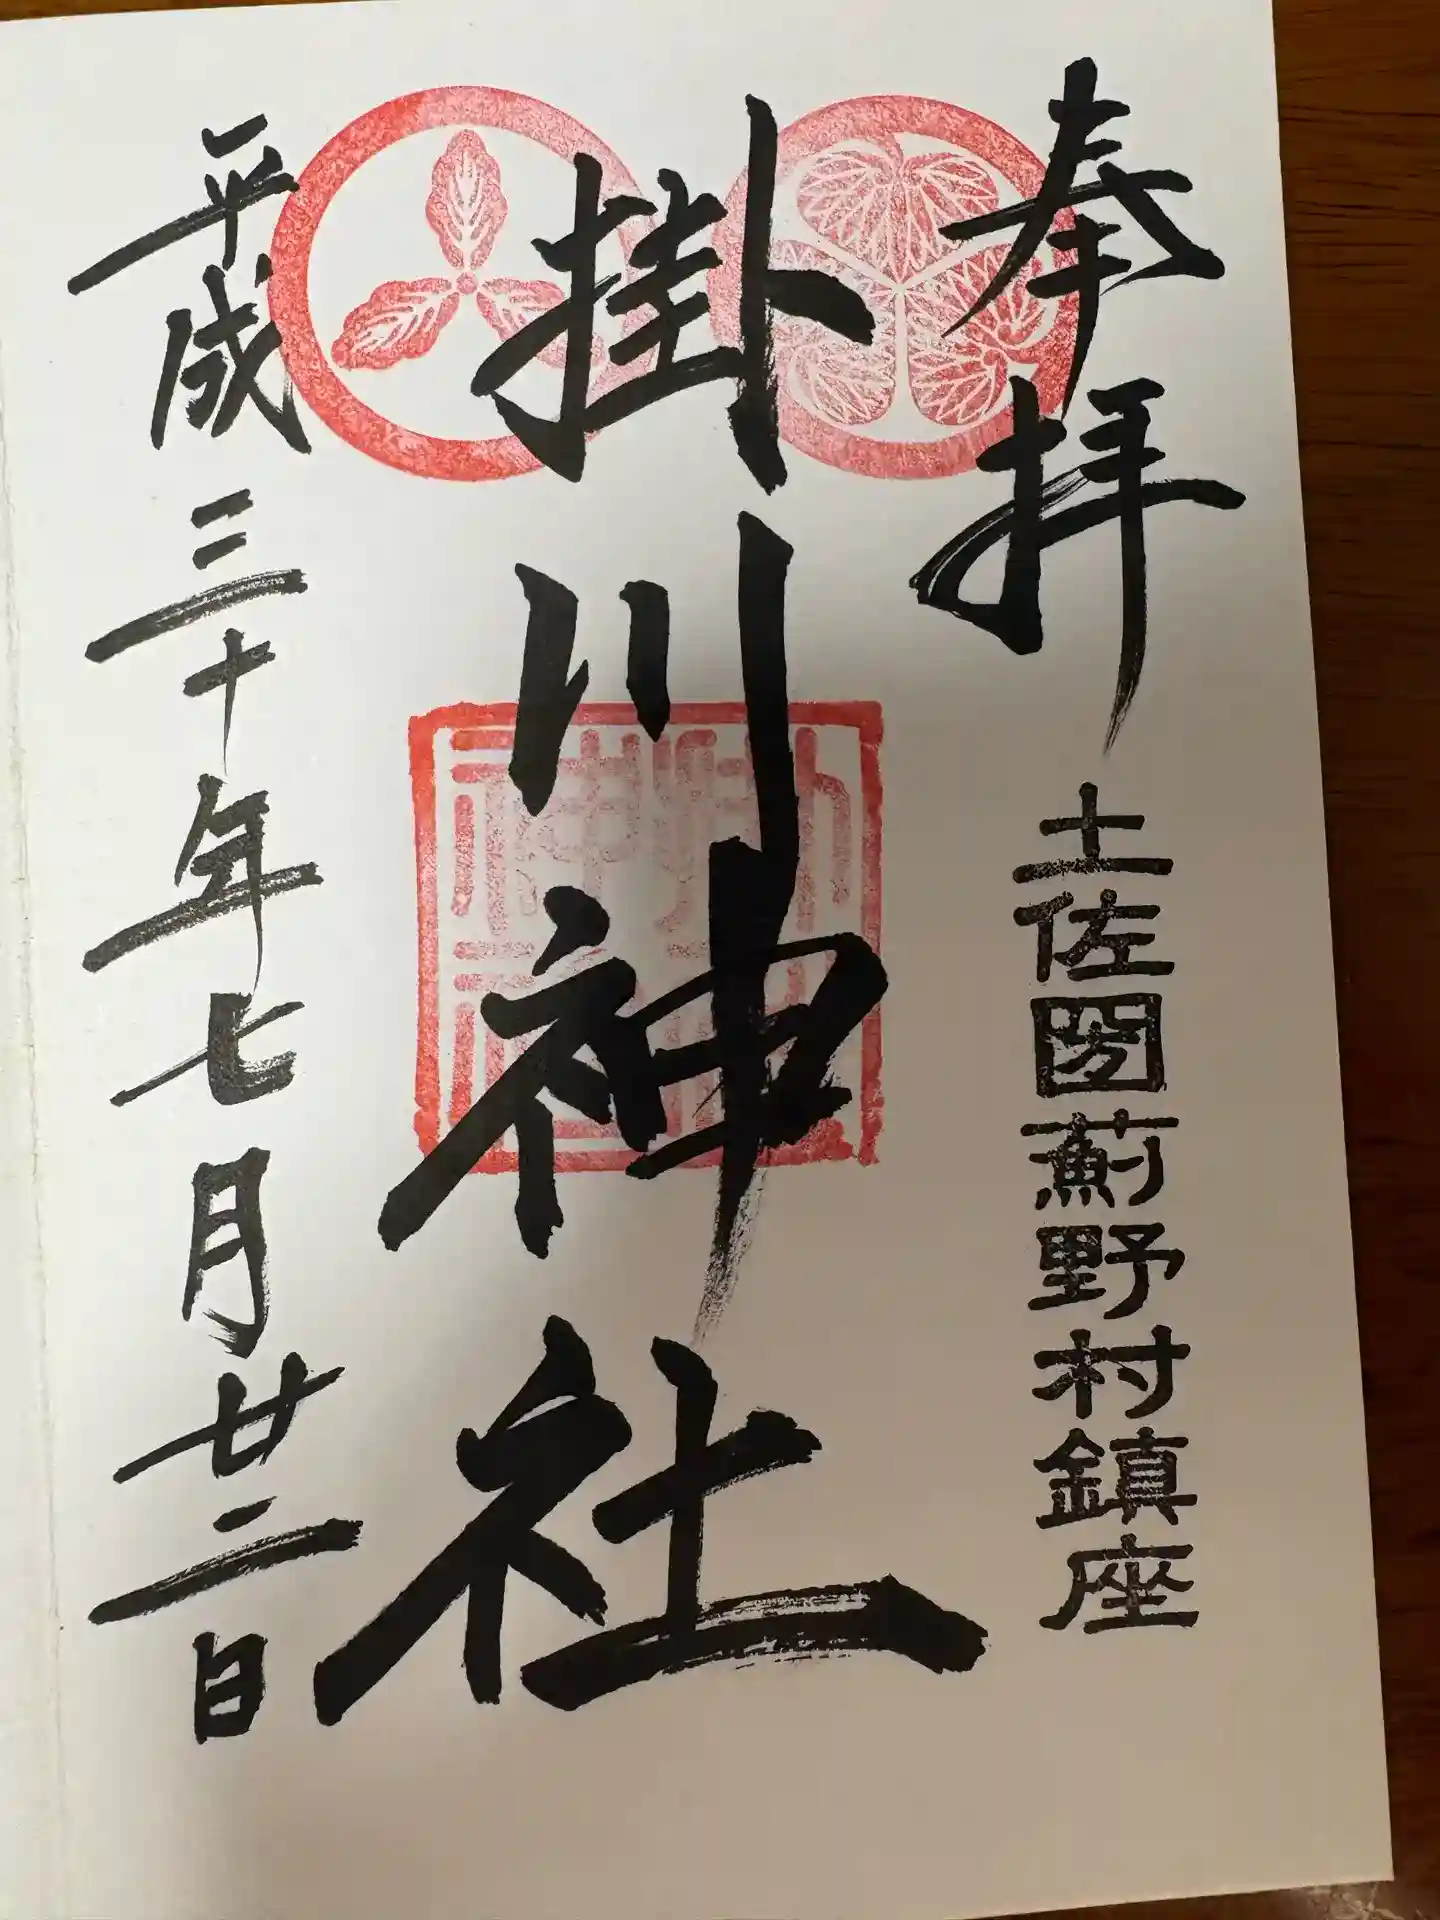 奉拝
土佐圀薊野村鎮座
掛川神社
平成三十年七月廿二日